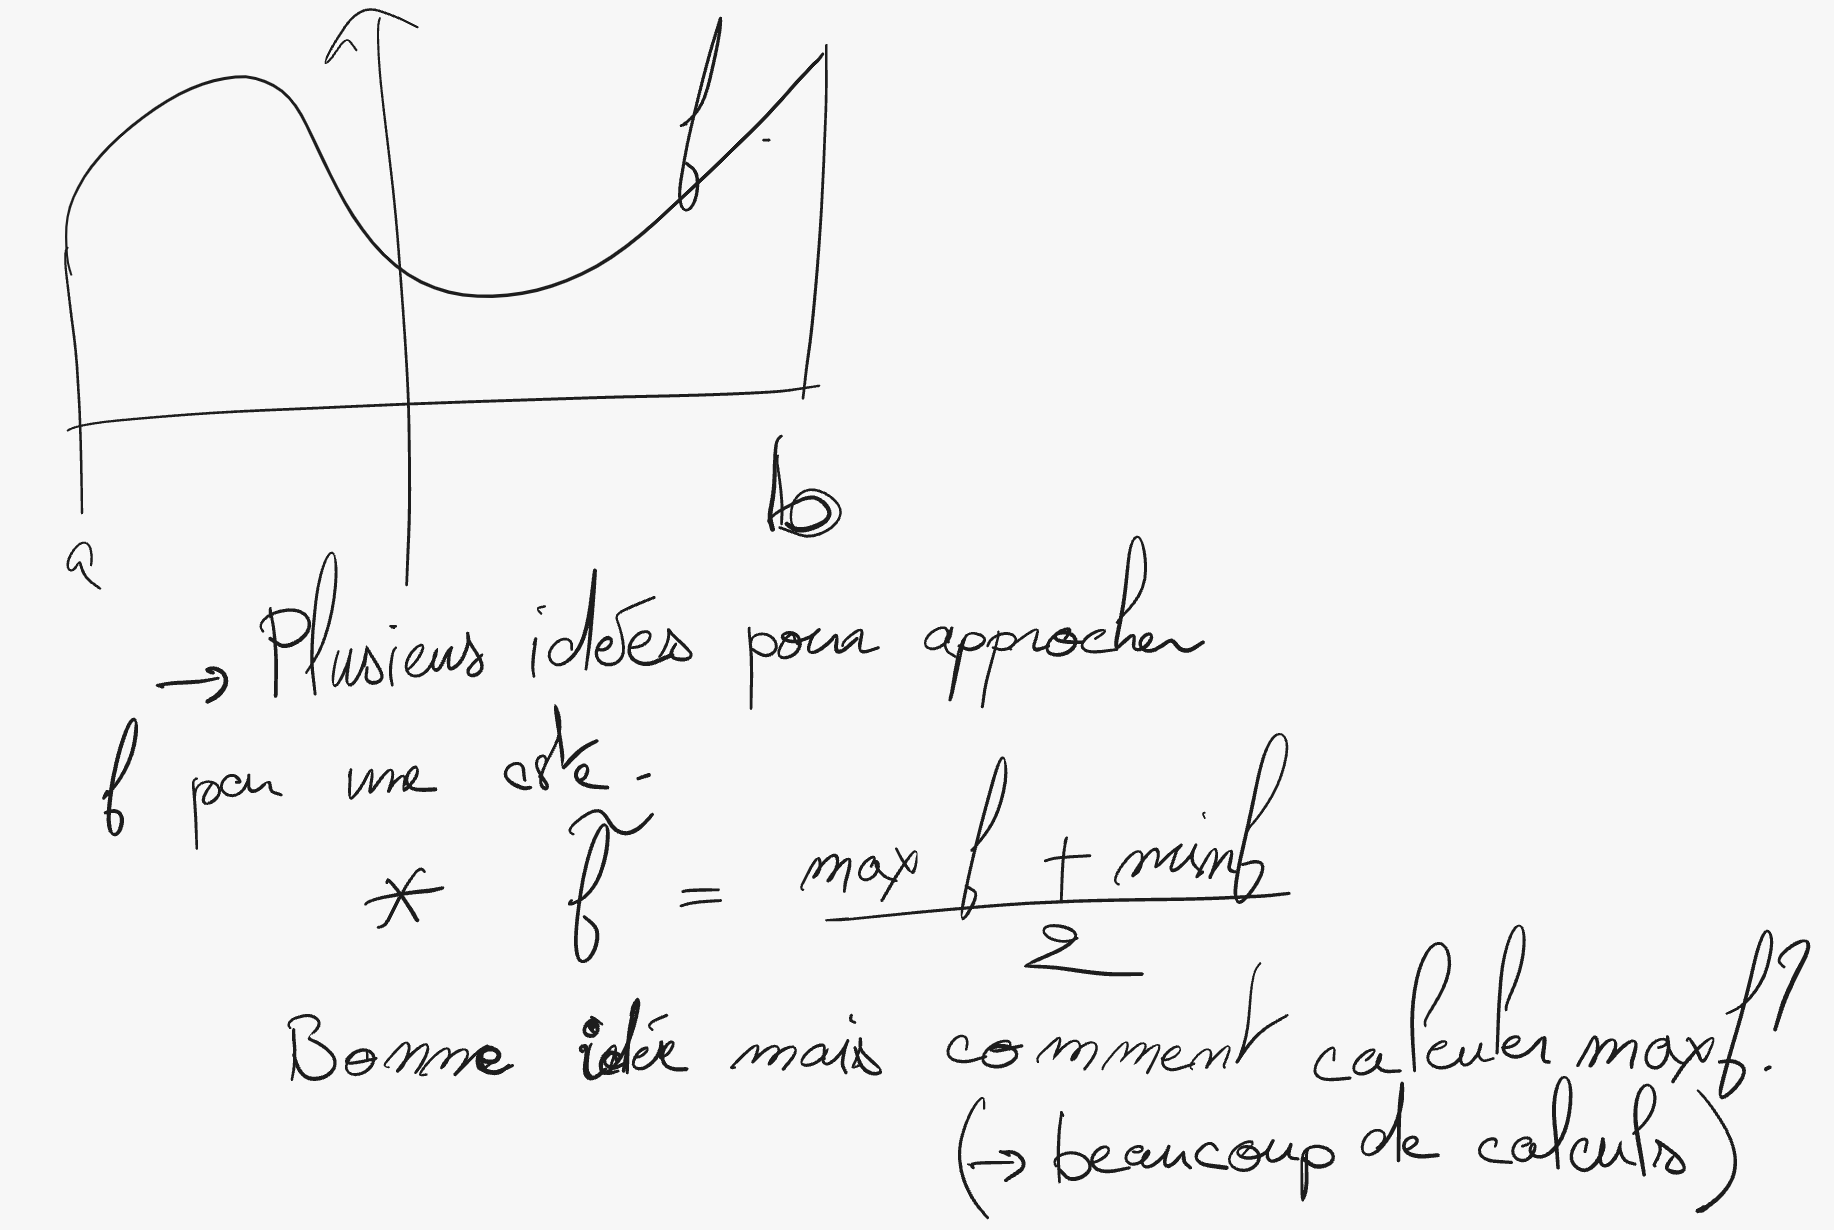 f
b
a
→ Plusieurs idées pour approcher
f par une cste.
* f̃ = (max f + min f) / 2
Bonne idée mais comment calculer max f ?
(→ beaucoup de calculs)